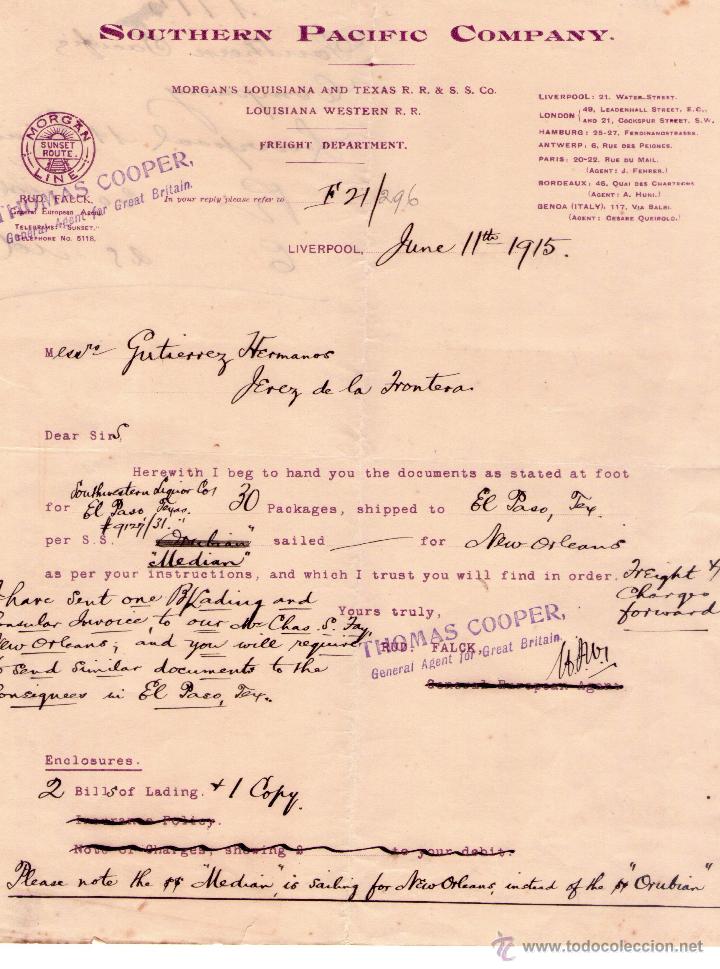 SOUTHERN PACIFIC COMPANY.
MORGAN'S LOUISIANA AND TEXAS R. R. & S. S. Co.
LOUISIANA WESTERN R. R.
FREIGHT DEPARTMENT.
LIVERPOOL: 21, WATER STREET.
LONDON { 49, LEADENHALL STREET, E.C.,
AND 21, COCKSPUR STREET, S.W.
HAMBURG: 25-27, FERDINANDSTRASSE.
ANTWERP: 6, RUE DES PEIGNES.
PARIS: 20-22, RUE DU MAIL.
(AGENT: J. FEHRER.)
BORDEAUX: 46, QUAI DES CHARTRONS
(AGENT: A. HUNI.)
GENOA (ITALY): 117, VIA BALBI.
(AGENT: CESARE QUEIROLO.)
MORGAN
SUNSET
ROUTE
LINE
THOMAS COOPER,
General Agent for Great Britain.
RUD. FALCK,
General European Agent
TELEGRAMS: "SUNSET,"
TELEPHONE No. 5118.
In your reply please refer to F 21/296
LIVERPOOL, June 11th 1915.
Messrs Gutierrez Hermanos
Jerez de la Frontera.
Dear Sirs,
Herewith I beg to hand you the documents as stated at foot
Southwestern Liquor Co/
for El Paso, Texas. 30 Packages, shipped to El Paso, Tex.
per S.S. "Orubian" sailed for New Orleans
"Median"
as per your instructions, and which I trust you will find in order. Freight &
Charges
forward
I have sent one B/Lading and
Consular Invoice, to our Mr Chas. S. Fay,
New Orleans; and you will require
to send similar documents to the
Consignees in El Paso, Tex.
Yours truly,
THOMAS COOPER,
General Agent for Great Britain.
RUD. FALCK,
General European Agent
Enclosures.
2 Bills of Lading. + 1 Copy.
Insurance Policy.
Note of Charges, showing £ to your debit.
Please note the SS "Median", is sailing for New Orleans, instead of the SS "Orubian"
www.todocoleccion.net